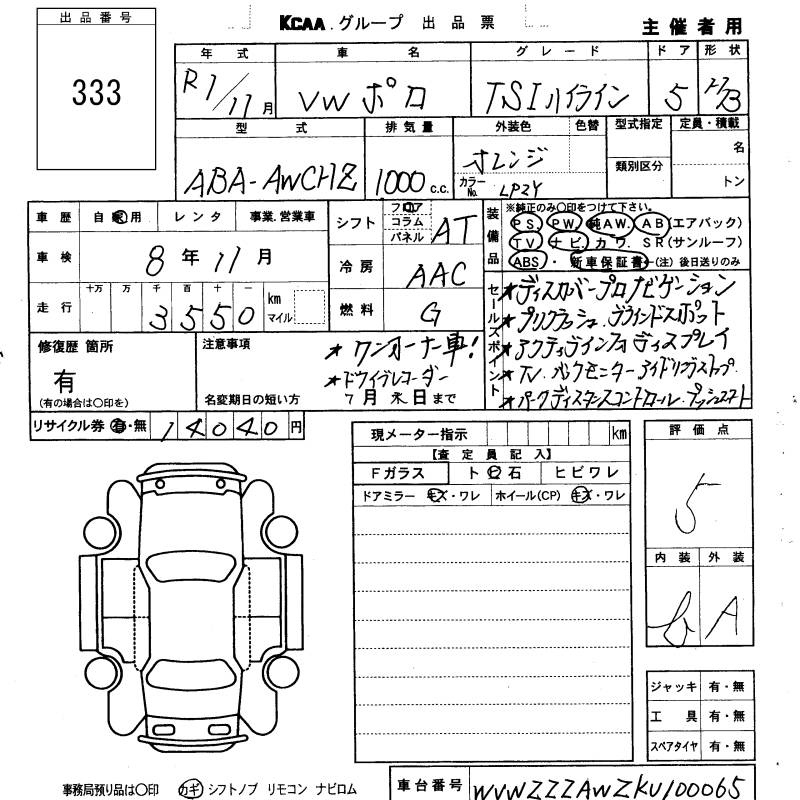 出品番号
333
KCAA.グループ 出品票
主催者用
年式 車名 グレード ドア 形状
R1/11月 VW ポロ TSIハイライン 5 H/B
型式 排気量 外装色 色替 型式指定 定員・積載
ABA-AWCHZ 1000 c.c. オレンジ 名
カラーNo. LP2Y 類別区分 トン
車歴 自家用 レンタ 事業.営業車
シフト フロア コラム パネル AT
車検 8年11月
冷房 AAC
走行 十万 万 千 百 十 一
3550 km マイル
燃料 G
装備品 ※純正のみ〇印をつけて下さい。
PS. PW. 純AW. AB(エアバック)
TV ナビ. カワ. SR(サンルーフ)
ABS ・ 新車保証書←(注)後日送りのみ
セールスポイント
★ディスカバープロナビゲーション
★プリクラッシュ.ブラインドスポット
★アクティブインフォディスプレイ
★TV. バックモニター アイドリングストップ.
★パークディスタンスコントロール.プッシュスタート
修復歴 箇所
有
(有の場合は〇印を)
注意事項
★ワンオーナー車!
★ドライブレコーダー
名変期日の短い方 7月末日まで
リサイクル券 有・無 14040円
現メーター指示 km
【査定員記入】
Fガラス ト ヒ 石 ヒビワレ
ドアミラー キズ・ワレ ホイール(CP) キズ・ワレ
評価点
5
内装 外装
b A
ジャッキ 有・無
工具 有・無
スペアタイヤ 有・無
事務局預り品は〇印 カギ シフトノブ リモコン ナビロム
車台番号 WVWZZZAWZKU100065